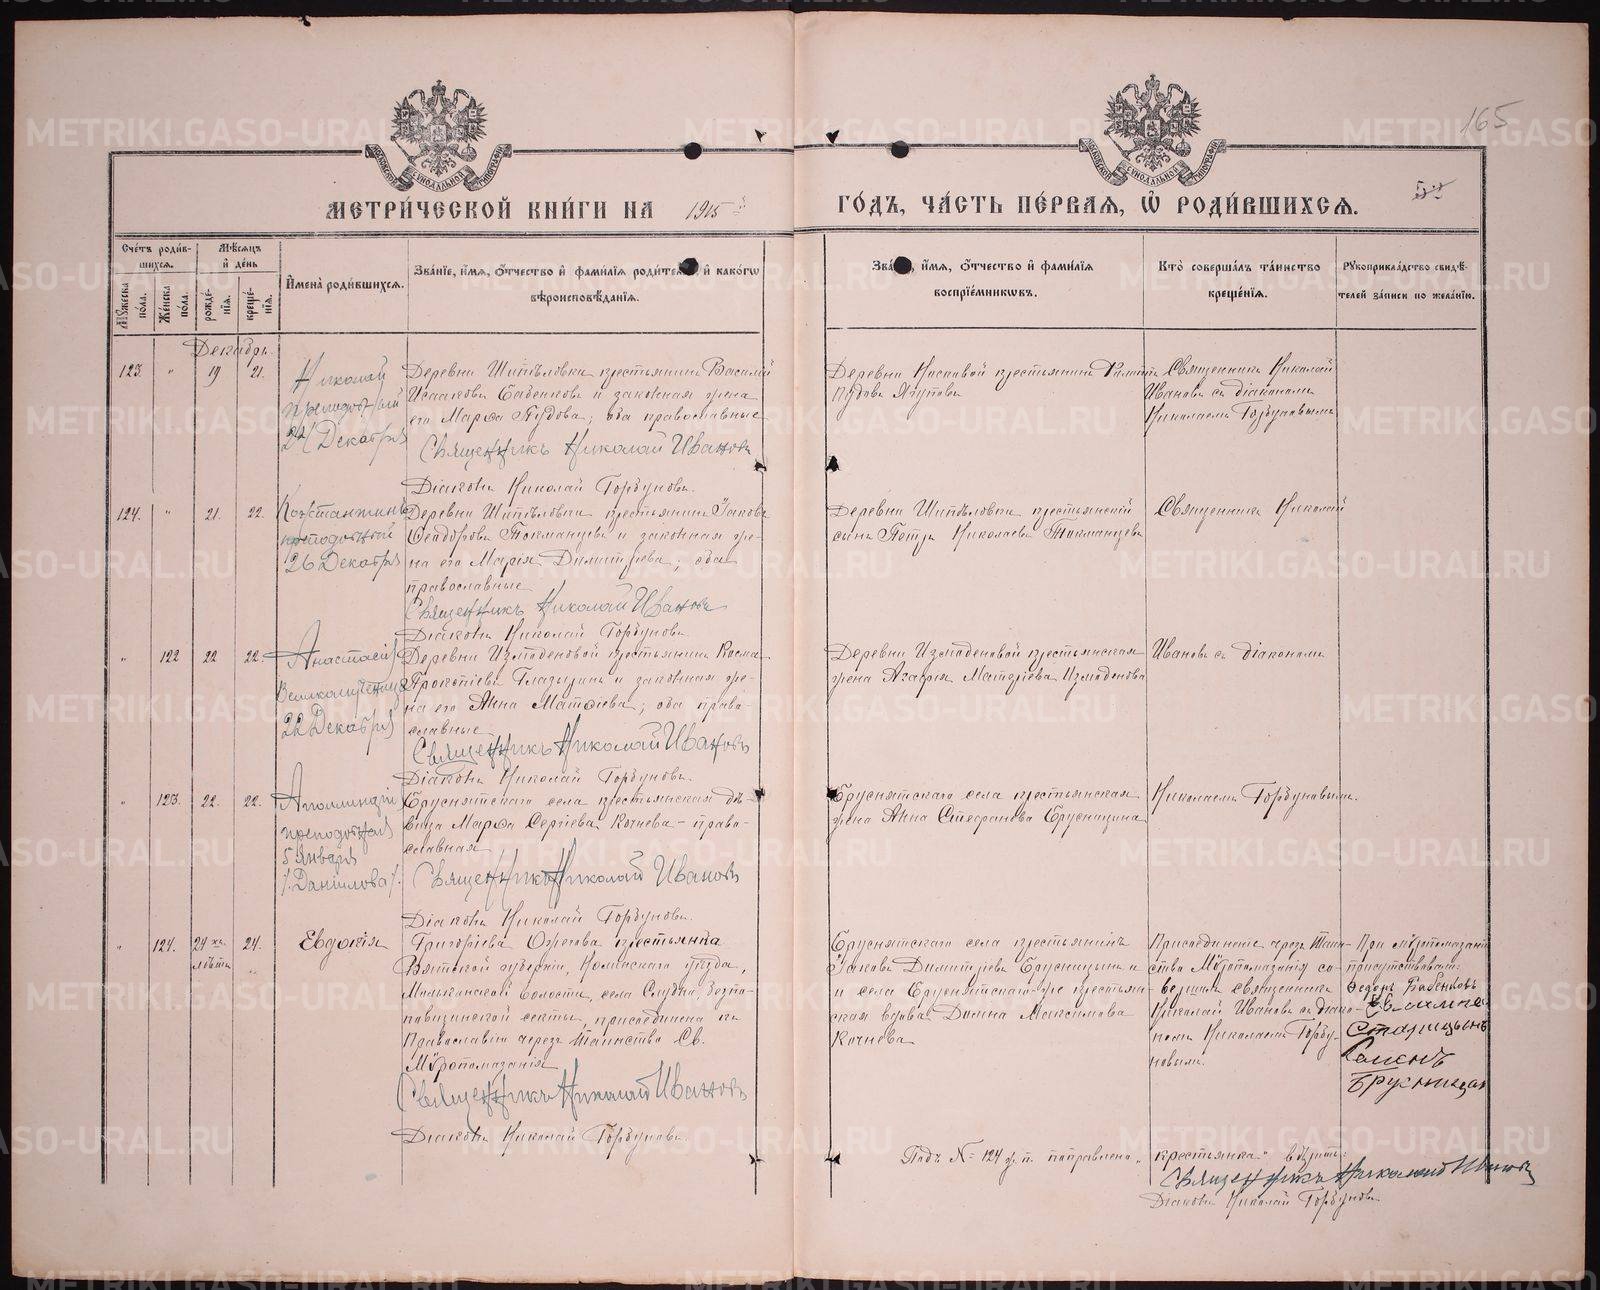 165
МЕТРИ́ЧЕСКОЙ КНИ́ГИ НА 1915 й
ГО́ДЪ, ЧА́СТЬ ПЕ́РВАЯ, Ѡ҆ РОДИ́ВШИХСѦ.
Сче́тъ роди́в-
шихсѧ.
Мѣ́сѧцъ
и҆ де́нь
Мꙋ́жеска по́ла.
Же́нска по́ла.
рожде́-
нїѧ.
креще́-
нїѧ.
И҆мена̀ роди́вшихсѧ.
Зва́нїе, и҆́мѧ, ѻ҆́тчество и҆ фами́лїѧ роди́телей, и҆ како́гѡ
вѣроисповѣ́данїѧ.
Зва́нїе, и҆́мѧ, ѻ҆́тчество и҆ фами́лїѧ
воспрїе́мникѡвъ.
Кто̀ соверша́лъ та́инство
креще́нїѧ.
Рꙋкоприкла́дство свидѣ́-
телей за́писи по жела́нїю.
Декабрь
123. " 19 21.
Николай
преподобный
24 Декабря
Деревни Шипѣловки крестьянинъ Василій
Исааковъ Бабенковъ и законная жена
его Марѳа Пудова; оба православные
Священникъ Николай Ивановъ
Діаконъ Николай Горбуновъ.
Пудовъ Ягутовъ
Священникъ Николай
Ивановъ съ діакономъ
Николаемъ Горбуновымъ
124. " 21. 22.
Константинъ
преподобный
26 Декабря
Деревни Шипѣловки крестьянинъ Іаковъ
Ѳеодоровъ Токманцевъ и законная же-
на его Марія Димитріева; оба
православные
Священникъ Николай Ивановъ
Діаконъ Николай Горбуновъ.
Деревни Шипѣловки крестьянскій
сынъ Петръ Николаевъ Токманцевъ
Священникъ Николай
" 122 22 22.
Анастасія
Великомученица
22 Декабря
Деревни Измоденовой крестьянинъ Косма
Прокопіевъ Глазыринъ и законная же-
на его Анна Матѳіева; оба право-
славные
Священникъ Николай Ивановъ
Діаконъ Николай Горбуновъ.
Деревни Измоденовой крестьянская
жена Агаѳія Измоденова
Ивановъ съ діакономъ
" 123. 22. 22.
преподобная
5 Января
/.Даніилова/.
Бруснятскаго села крестьянская дѣ-
вица Марѳа Сергіева Кочнева - право-
славная
Священникъ Николай Ивановъ
Діаконъ Николай Горбуновъ.
Бруснятскаго села крестьянская
жена Анна Стефанова Брусницына
Николаемъ Горбуновымъ.
" 124. 24 хъ. 24.
лѣтъ "
Евдокія
Григоріева Ожегова крестьянка
Вятской губерніи,
волости, села безпо-
повщинской секты, присоединена къ
Православію черезъ Таинство Св.
Мѵропомазанія
Священникъ Николай Ивановъ
Діаконъ Николай Горбуновъ.
Бруснятскаго села крестьянинъ
Іаковъ Димитріевъ Брусницынъ и
и села Бруснятскаго-же крестьян-
ская вдова Домна Максимова
Кочнева
Присоединенъ чрезъ Таин-
ство Мѵропомазанія со-
вершилъ священникъ
Николай Ивановъ съ діако-
номъ Николаемъ Горбу-
новымъ.
При мѵропомазаніи
присутствовали:
Федоръ Бабенковъ
Старицынъ
Семенъ
Брусницын
Подъ № 124 ж. п. поправлено "крестьянка" вѣрить:
Священникъ Николай Ивановъ
Діаконъ Николай Горбуновъ.
METRIKI.GASO-URAL.RU